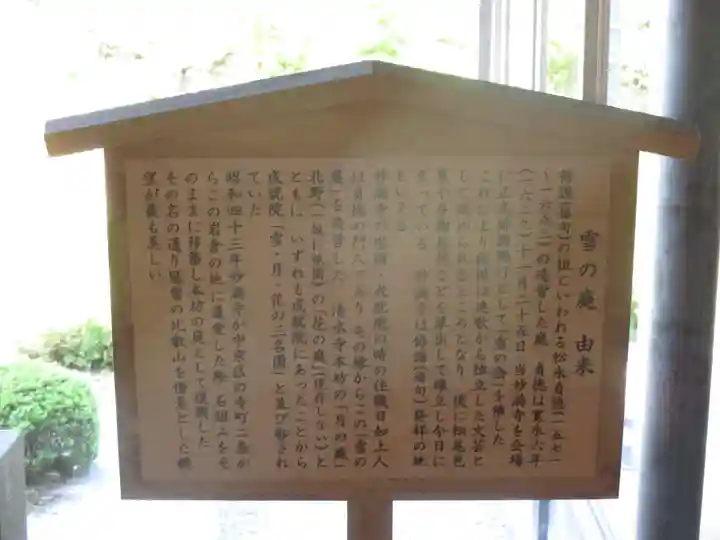 雪の庭 由来
俳諧(俳句)の祖といわれる松永貞徳(一五七一
〜一六五三)の造営した庭 貞徳は寛永六年
(一六二九)十一月二十五日 当妙満寺を会場
に正式俳諧興行として「雪の会」を催した
これにより俳諧は連歌から独立した文芸と
して認められるところとなり 後に松尾芭
蕉や与謝蕪村などを輩出して確立し今日に
至っている 妙満寺は俳諧(俳句)発祥の地
といえる
妙満寺の塔頭・成就院の時の住職日如上人
は貞徳の門人であり その縁からこの「雪の
庭」を造営した 清水寺本坊の「月の庭」
北野(一説に祇園)の「花の庭」(現存しない)と
ともに いずれも成就院にあったことから
成就院「雪・月・花の三名園」と並び称され
ていた
昭和四十三年妙満寺が中京区の寺町二条か
らこの岩倉の地に遷堂した際 石組みをそ
のままに移築し本坊の庭として復興した
その名の通り冠雪の比叡山を借景とした眺
望が最も美しい